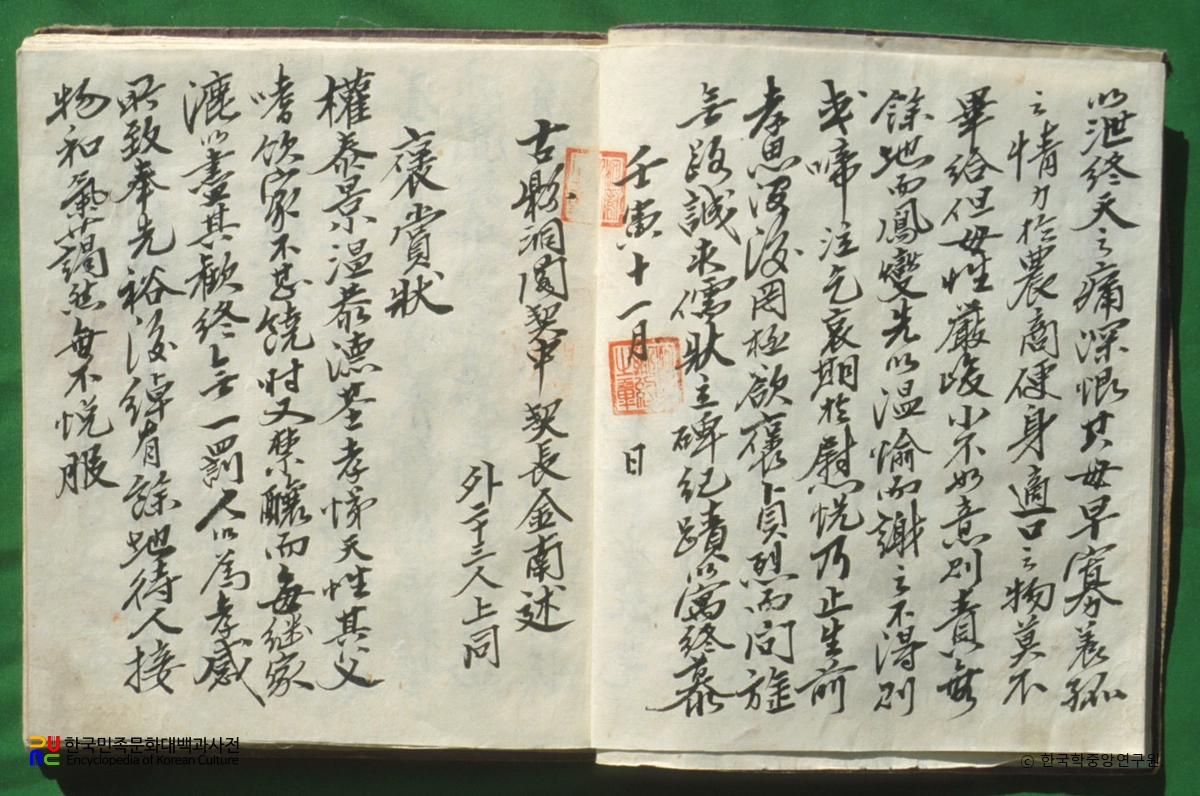 以泄終天之痛深恨其母早寡養孤
之情力於農商硬身適口之物莫不
畢給但母性嚴峻小不如意則責無
餘地而鳳燮先以溫愉而謝之不得則
或啼泣乞哀期於慰悅乃止生前
孝思沒後罔極欲褒貞烈而問旌
無路誠求儒狀立碑紀蹟以寓終慕
壬寅十一月 日
古縣洞闔契中 契長金南述
外二十三人上同
褒賞狀
權泰景小溫恭漂基孝悌天性其父
嗜飲家不甚饒時又禁釀而每継家
漉以盡其歡終無一罰人以為孝感
所致奉先裕後綽有餘地待人接
物和氣藹然每不悅服
한국민족문화대백과사전
Encyclopedia of Korean Culture
ⓒ 한국학중앙연구원